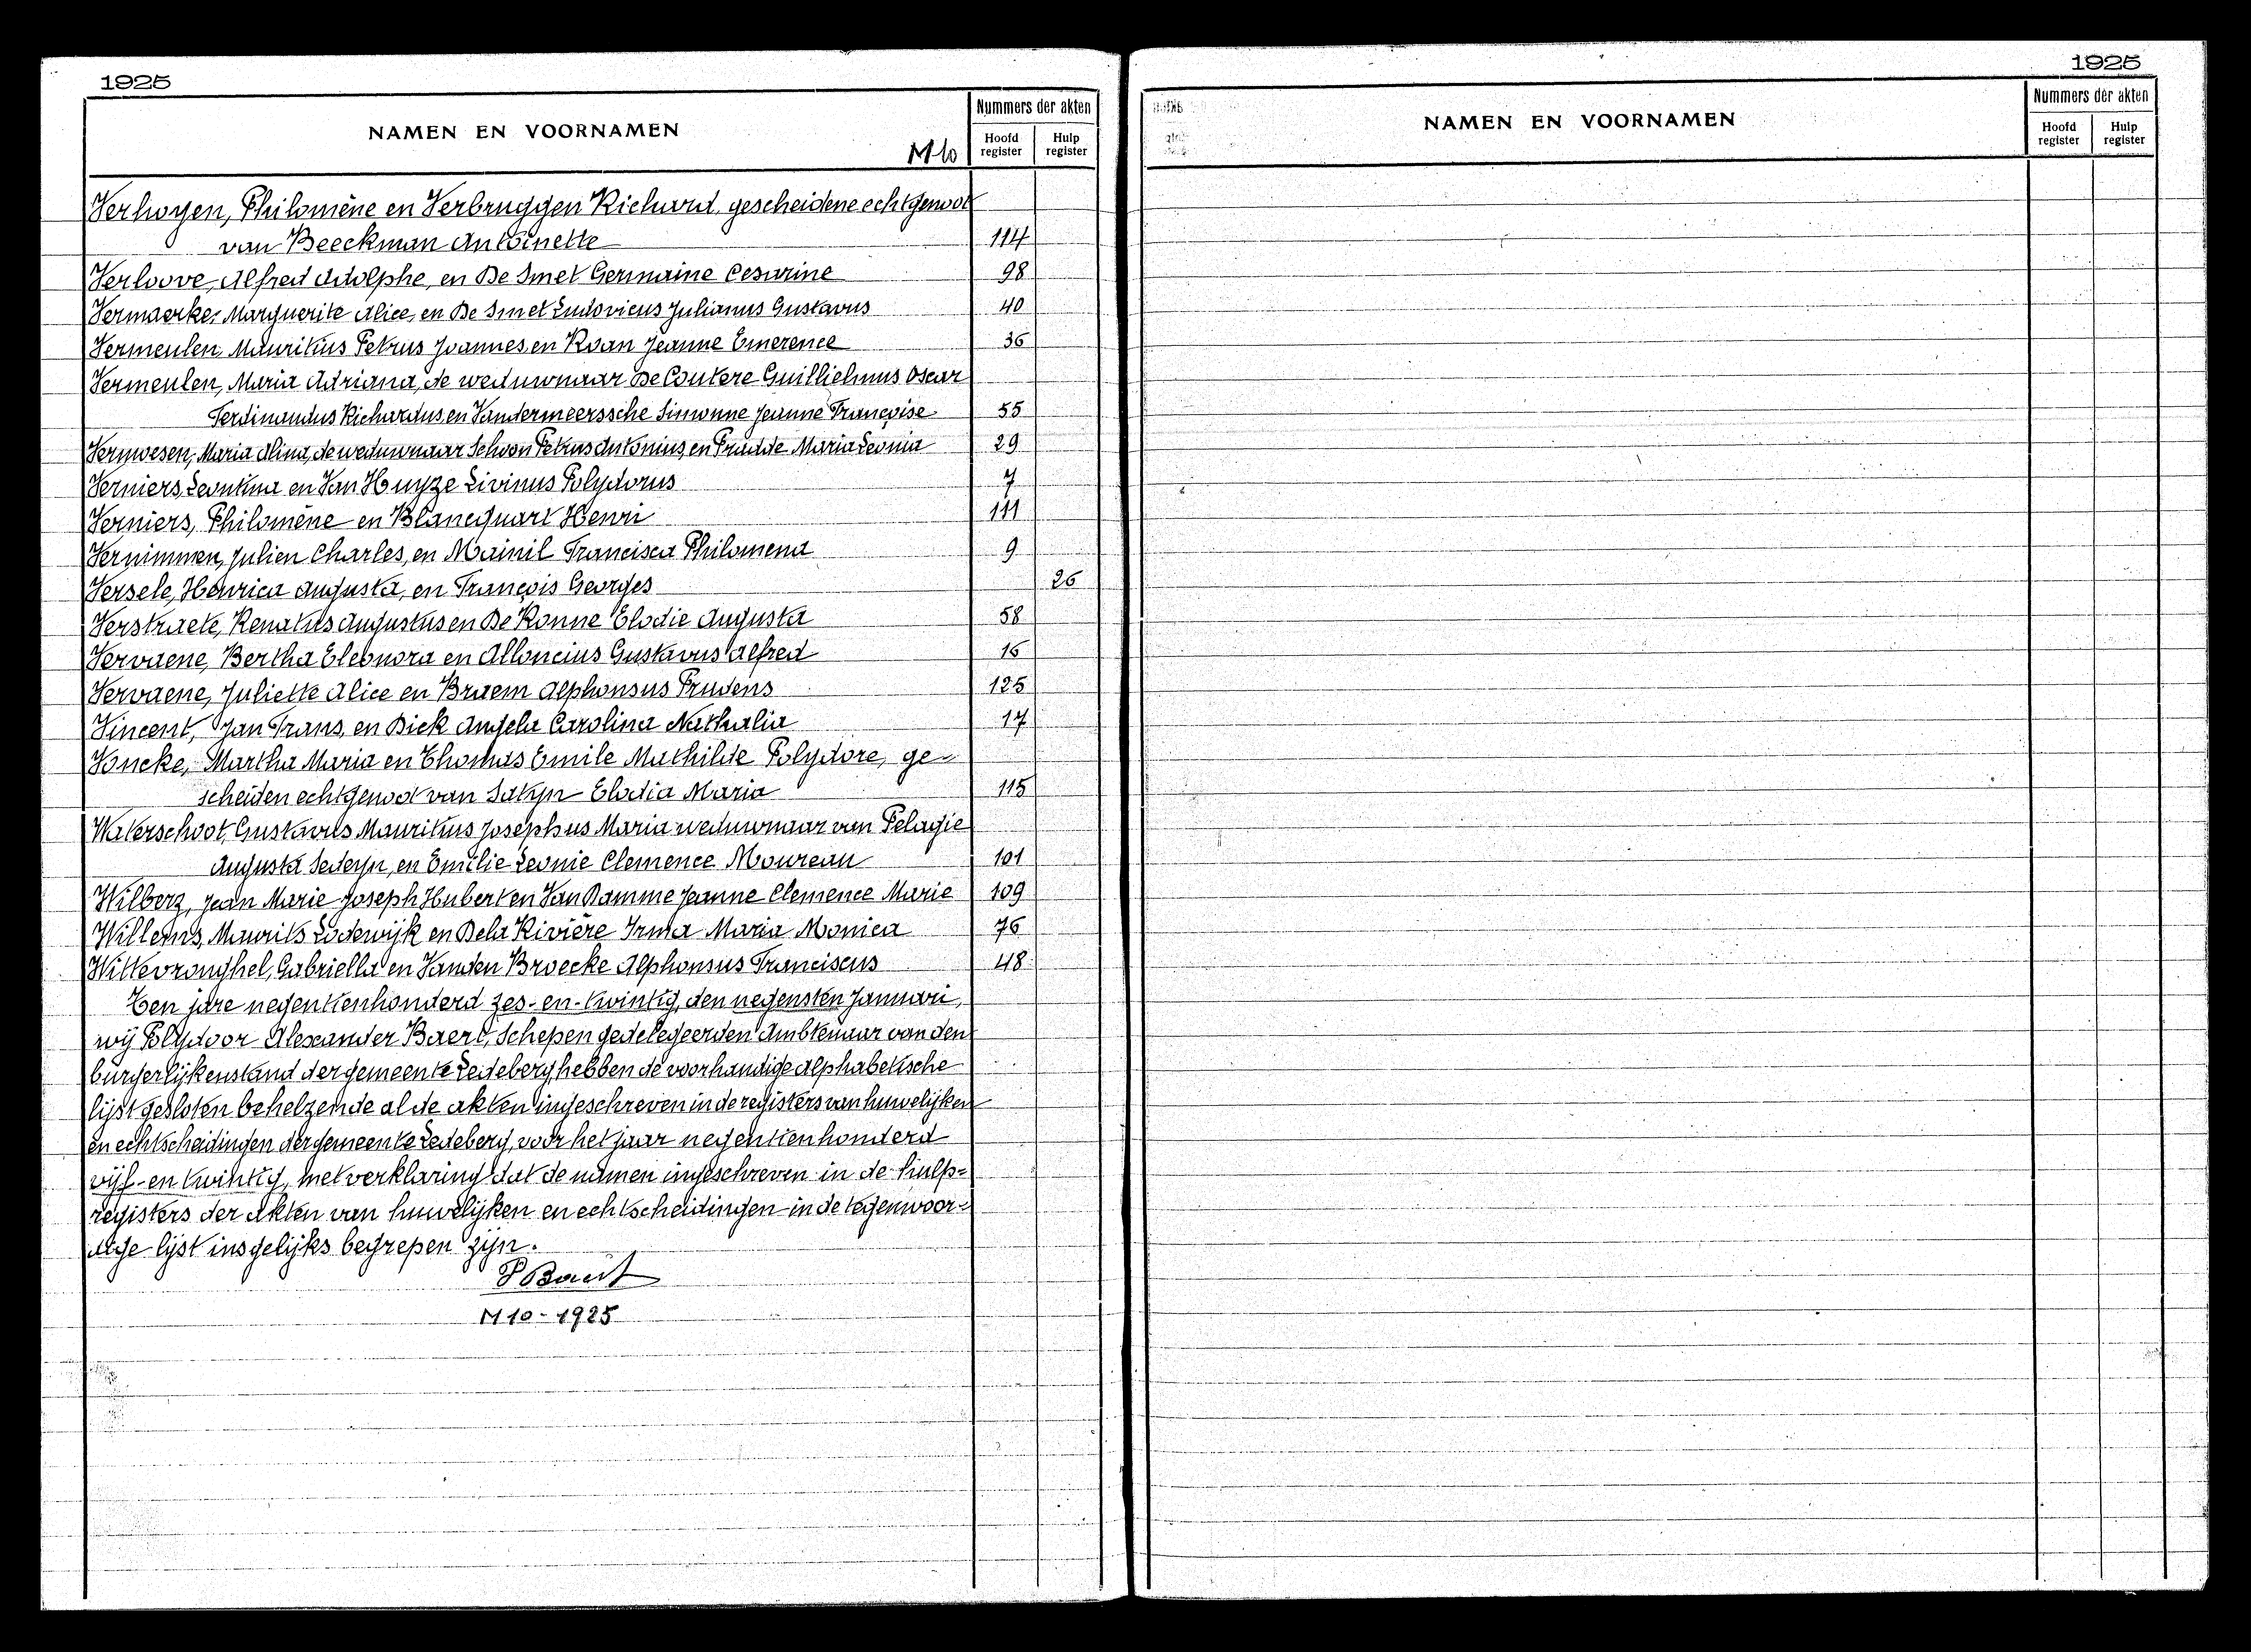 1925
NAMEN EN VOORNAMEN
M 10
Nummers der akten
Hoofd register
Hulp register
Verhoyen, Philomène en Verbruggen Richard, gescheidene echtgenoot
van Beeckman Antoinette 114
Verloove, Alfred Adolphe, en De Smet Germaine Cesarine 98
Vermaerke, Marguerite Alice, en De Smet Ludovicus Julianus Gustavus 40
Vermeulen, Mauritius Petrus Joannes en Roan Jeanne Emerence 36
Vermeulen, Maria Adriana, de weduwnaar De Coutere Guillielmus Oscar
Ferdinandus Richardus en Vandermeerssche Simonne Jeanne Françoise 55
Vermoesen, Maria Alina, de weduwnaar Schoon Petrus Antonius, en Maria Leonia 29
Verniers, Leontina en Van Huyze Livinus Polydorus 7
Verniers, Philomène en Blancquart Henri 111
Vernimmen, Julien Charles, en Mainil Francisca Philomena 9
Versele, Henrica Augusta, en François Georges 26
Verstraete, Renatus Augustus en De Ronne Elodie Augusta 58
Vervaene, Bertha Eleonora en Alloncius Gustavus Alfred 16
Vervaene, Juliette Alice en Braem Alphonsus Prudens 125
Vincent, Jan Frans, en Dick Angela Carolina Nathalia 17
Voncke, Martha Maria en Thomas Emile Mathilde Polydore, ge-
scheiden echtgenoot van Satyn Elodia Maria 115
Waterschoot, Gustavus Mauritius Josephus Maria weduwnaar van Pelagie
Augusta Sedeyn, en Emilie Leonie Clemence Moureau 101
Wilberz, Jean Marie Joseph Hubert en Van Damme Jeanne Clemence Marie 109
Willems, Maurits Lodewijk en Dela Rivière Irma Maria Monica 76
Wittevronghel, Gabriella en Vanden Broecke Alphonsus Franciscus 48
Ten jare negentienhonderd zes-en-twintig, den negensten Januari,
wij Polydoor Alexander Baert, Schepen gedelegeerden Ambtenaar van den
burgerlijkenstand der gemeente Ledeberg, hebben de voorhandige alphabetische
lijst gesloten behelzende al de akten ingeschreven in de registers van huwelijken
en echtscheidingen der gemeente Ledeberg, voor het jaar negentienhonderd
vijf-en twintig, met verklaring dat de namen ingeschreven in de hulp=
registers der akten van huwelijken en echtscheidingen in de tegenwoor=
dige lijst insgelijks begrepen zijn.
P Baert
M 10 - 1925
1925
NAMEN EN VOORNAMEN
Nummers der akten
Hoofd register
Hulp register